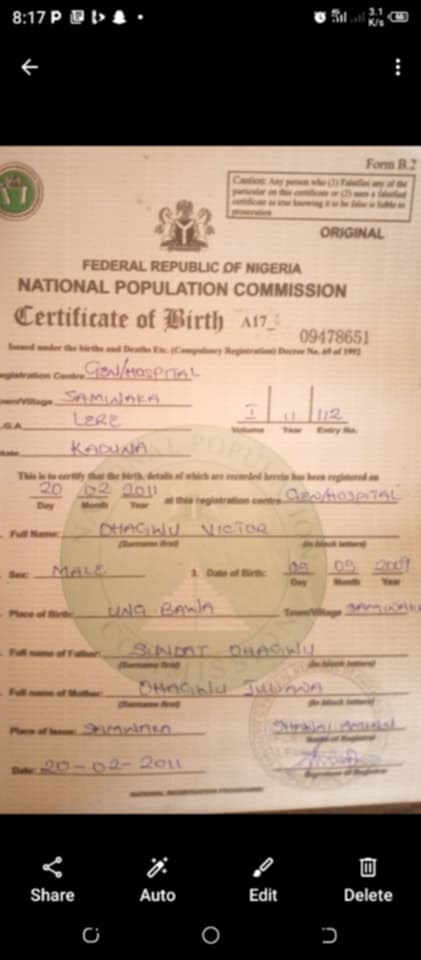 8:17 P
3.1
K/s
Form B.2
Caution: Any person who (1) Falsifies any of the
particular on this certificate or (2) uses a falsified
certificate as true knowing it to be false is liable to
prosecution
ORIGINAL
FEDERAL REPUBLIC OF NIGERIA
NATIONAL POPULATION COMMISSION
Certificate of Birth A17_
09478651
Issued under the births and Deaths Etc. (Compulsory Registration) Decree No. 69 of 1992
egistration Centre GEN/HOSPITAL
own/Village SAMINAKA
I 11 112
.G.A LERE
Volume Year Entry No.
tate KADUNA
This is to certify that the birth, details of which are recorded herein has been registered on
20 02 2011 at this registration centre GEN/HOSPITAL
Day Month Year
Full Name: OHAGWU VICTOR
(Surname first) (in block letters)
Sex: MALE 3. Date of Birth: 09 2009
Day Month Year
Place of Birth: UNG BAWA Town/Village SAMINAKA
Full name of Father: SUNDAY OHAGWU
(Surname first) (in block letters)
Full name of Mother: OHAGWU
(Surname first) (in block letters)
Place of Issue: SAMINAKA
Name of Registrar
Date: 20-02-2011
Signature of Registrar
Share Auto Edit Delete